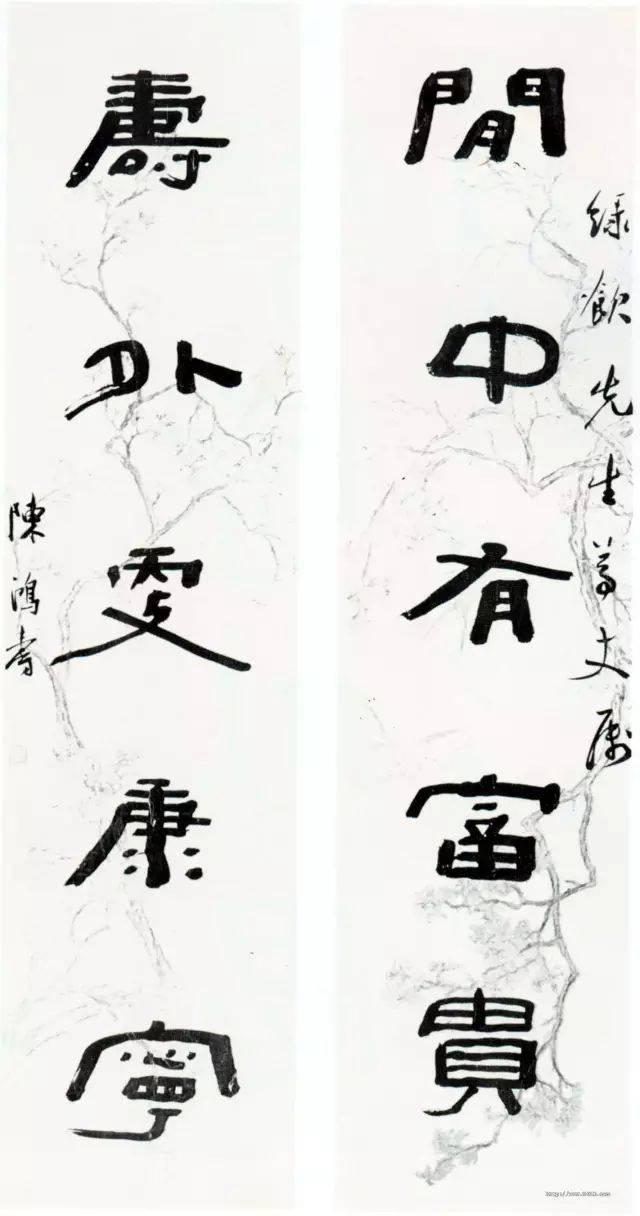 閒中有富貴
綠飲先生尊丈屬
壽外更康寧
陳鴻壽